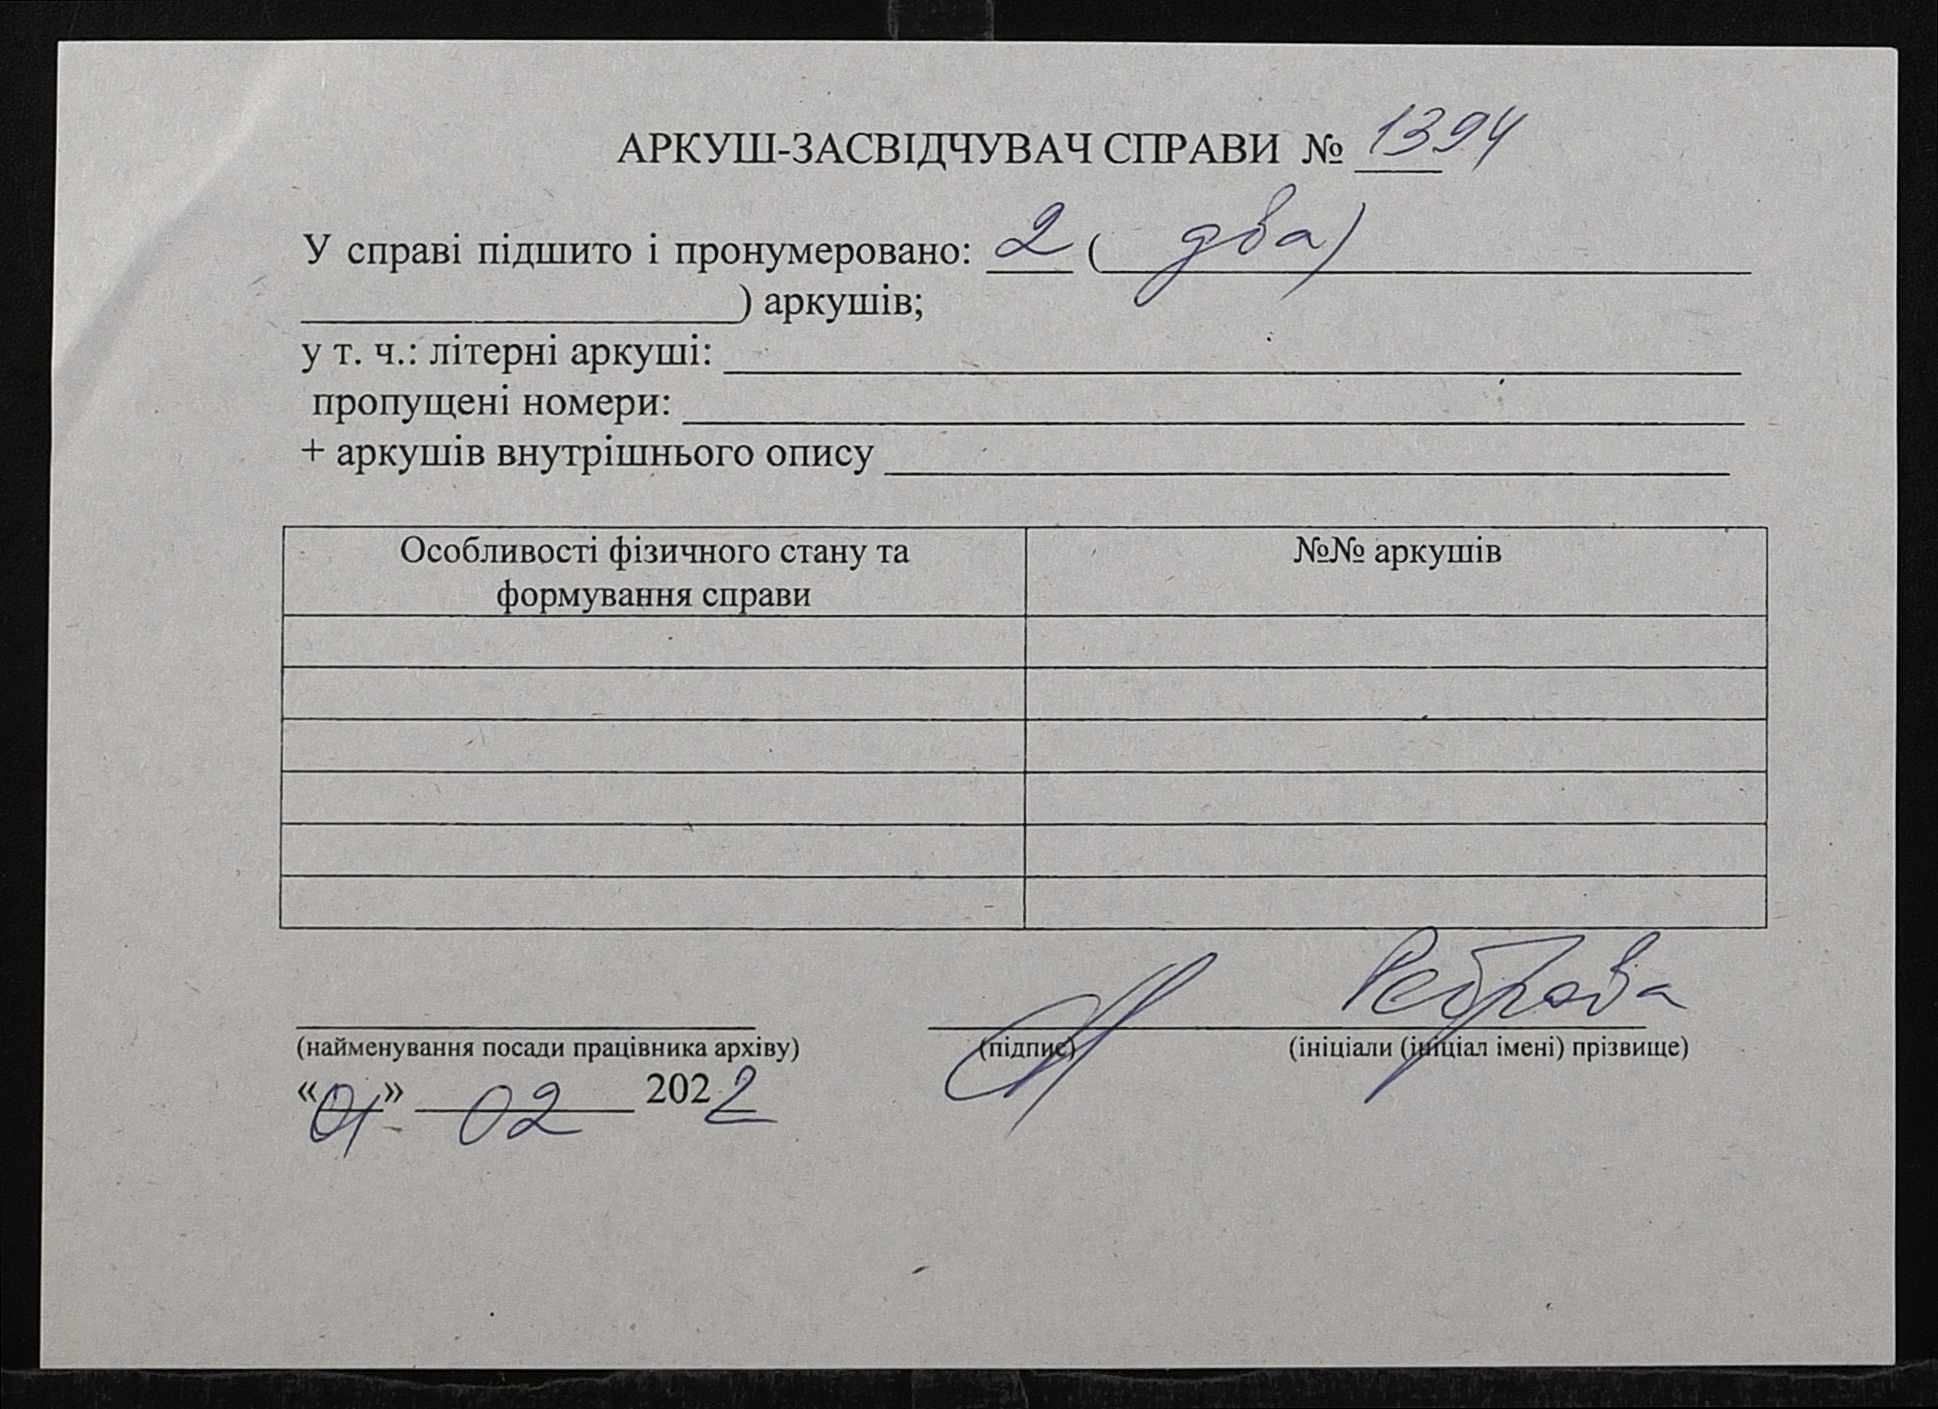 АРКУШ-ЗАСВІДЧУВАЧ СПРАВИ № 1394
У справі підшито і пронумеровано: 2 ( два)
) аркушів;
у т. ч.: літерні аркуші:
пропущені номери:
+ аркушів внутрішнього опису
Особливості фізичного стану та
формування справи
№№ аркушів
Реброва
(найменування посади працівника архіву) (підпис) (ініціали (ініціал імені) прізвище)
«01» 02 2022